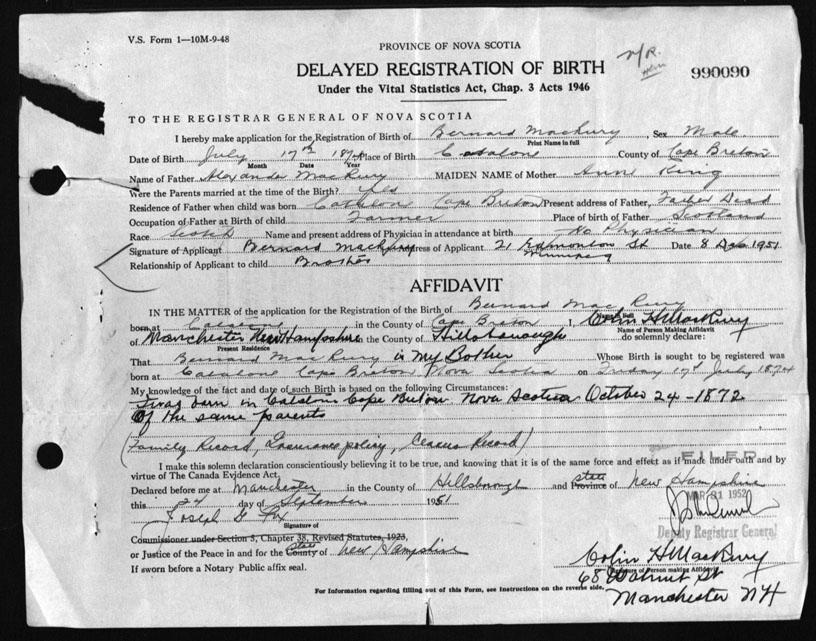 V.S. Form 1—10M-9-48
PROVINCE OF NOVA SCOTIA
N/R.
990090
DELAYED REGISTRATION OF BIRTH
Under the Vital Statistics Act, Chap. 3 Acts 1946
TO THE REGISTRAR GENERAL OF NOVA SCOTIA
I hereby make application for the Registration of Birth of Bernard MacRury Sex Male
Print Name in full
Date of Birth July 17th 1874 Place of Birth Catalone County of Cape Breton
Month Date Year
Name of Father Alexander MacRury MAIDEN NAME of Mother Anne King
Were the Parents married at the time of the Birth? Yes
Residence of Father when child was born Catalone Cape Breton Present address of Father, Father Dead
Occupation of Father at Birth of child Farmer Place of birth of Father Scotland
Race Scotch Name and present address of Physician in attendance at birth No Physician
Signature of Applicant Bernard MacRury Address of Applicant 21 Edmonton St Date 8 Dec 1951
Winnipeg
Relationship of Applicant to child Brother
AFFIDAVIT
IN THE MATTER of the application for the Registration of Birth of Bernard MacRury
born at Catalone in the County of Cape Breton I, Colin H MacRury
Name of Person Making Affidavit
of Manchester New Hampshire in the County of Hillsborough do solemnly declare:
Present Residence
That Bernard MacRury is My Bother Whose Birth is sought to be registered was
born at Catalone Cape Breton Nova Scotia on Friday 17th July 1874
My knowledge of the fact and date of such Birth is based on the following Circumstances:
I was born in Cape Breton Nova Scotia October 24-1872
Of the same parents
(Family Record, Insurance policy, Census Record)
I make this solemn declaration conscientiously believing it to be true, and knowing that it is of the same force and effect as if made under oath and by
FILED
virtue of The Canada Evidence Act.
state
Declared before me at Manchester in the County of Hillsborough and Province of New Hampshire
MAR 31 1952
this 24 day of September 1951
Joseph G
Signature of
Deputy Registrar General
Commissioner under Section 3, Chapter 38, Revised Statutes, 1923,
State
or Justice of the Peace in and for the County of New Hampshire
Colin H MacRury
Signature of Person making Affidavit
If sworn before a Notary Public affix seal.
68 Walnut St
For Information regarding filling out of this Form, see Instructions on the reverse side.
Manchester NH